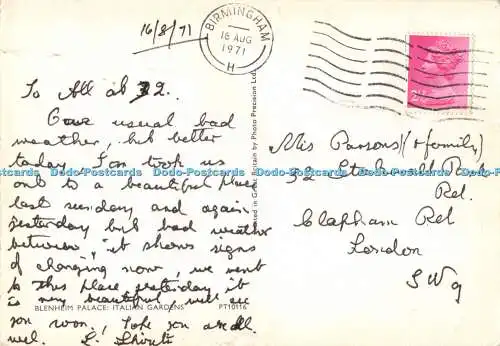 16/8/71
BIRMINGHAM
16 AUG
1971
H
To All at 32.
Our usual bad
weather, but better
today. Ian took us
out to a beautiful place
last sunday, and again
yesterday but bad weather
between, it shows signs
of changing now, we went
to this place yesterday it
is very beautiful, will see
you soon, hope you are all
well.
BLENHEIM PALACE: ITALIAN GARDENS
PT10116
Printed in Great Britain by Photo Precision Ltd.
Mis Parsons (& family)
32 Park
Rd.
Clapham Rd
London
SW9
Dodo-Postcards Dodo-Postcards Dodo-Postcards Dodo-Postcards Dodo-Postcards Dodo-Postcards